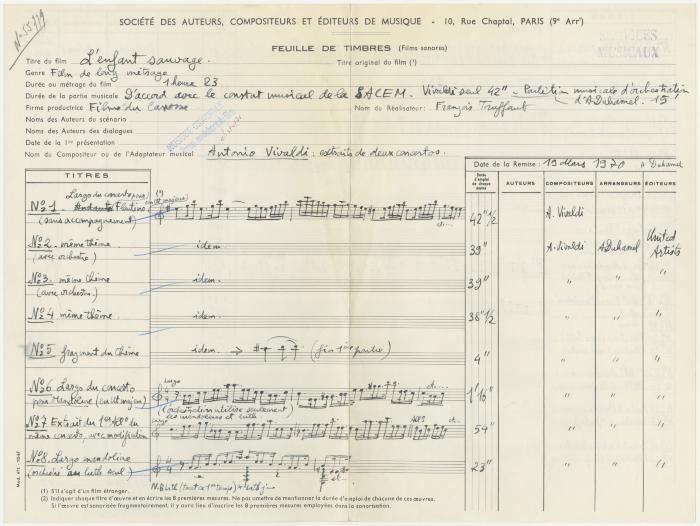 N-55719
SOCIÉTÉ DES AUTEURS, COMPOSITEURS ET ÉDITEURS DE MUSIQUE - 10, Rue Chaptal, PARIS (9e Arrt)
SERVICES
MUSICAUX
FEUILLE DE TIMBRES (Films sonores)
Titre du film L'enfant sauvage. Titre original du film (1)
Genre Film de long métrage
Durée ou métrage du film 1 heure 23
Durée de la partie musicale D'accord avec le constat musical de la SACEM. Vivaldi seul 42" - Partition musicale d'orchestration
d'A Duhamel. 15
Firme productrice Films du Carosse Nom du Réalisateur: François Truffaut
Noms des Auteurs du scénario
Noms des Auteurs des dialogues
Date de la 1re présentation
Nom du Compositeur ou de l'Adaptateur musical Antonio Vivaldi: extraits de deux concertos.
Date de la Remise: 19 Mars 1970 A Duhamel
TITRES
Durée d'emploi de chaque œuvre
AUTEURS COMPOSITEURS ARRANGEURS ÉDITEURS
Largo du concerto pour
No 1. Andante Flautino en ut majeur (2)
(sans accompagnement) etc... 42"1/2 A. Vivaldi
No 2. même thème idem. 39" A. Vivaldi A Duhamel United
(avec orchestre) Artists
No 3. même thème idem. 39" " " "
(avec orchestre.)
No 4 même thème idem. 38"1/2 " " "
No 5 fragment du thème idem. → (fin 1ère partie) 4" " " "
No 6 Largo du concerto Largo etc.... 1'16" " " "
pour Mandoline (en ut majeur) (orchestration utilise seulement)
les mandolines et luth.
No 7 Extrait du 1er All° du Largo etc... 54" " " "
même concerto, avec modification
No 8. Largo mandoline 23" " " "
(orchestre luth seul)
(1) S'il s'agit d'un film étranger.
(2) Indiquer chaque titre d'œuvre et en écrire les 8 premières mesures. Ne pas omettre de mentionner la durée d'emploi de chacune de ces œuvres.
Si l'œuvre est sonorisée fragmentairement, il y aura lieu d'inscrire les 8 premières mesures employées dans la sonorisation.